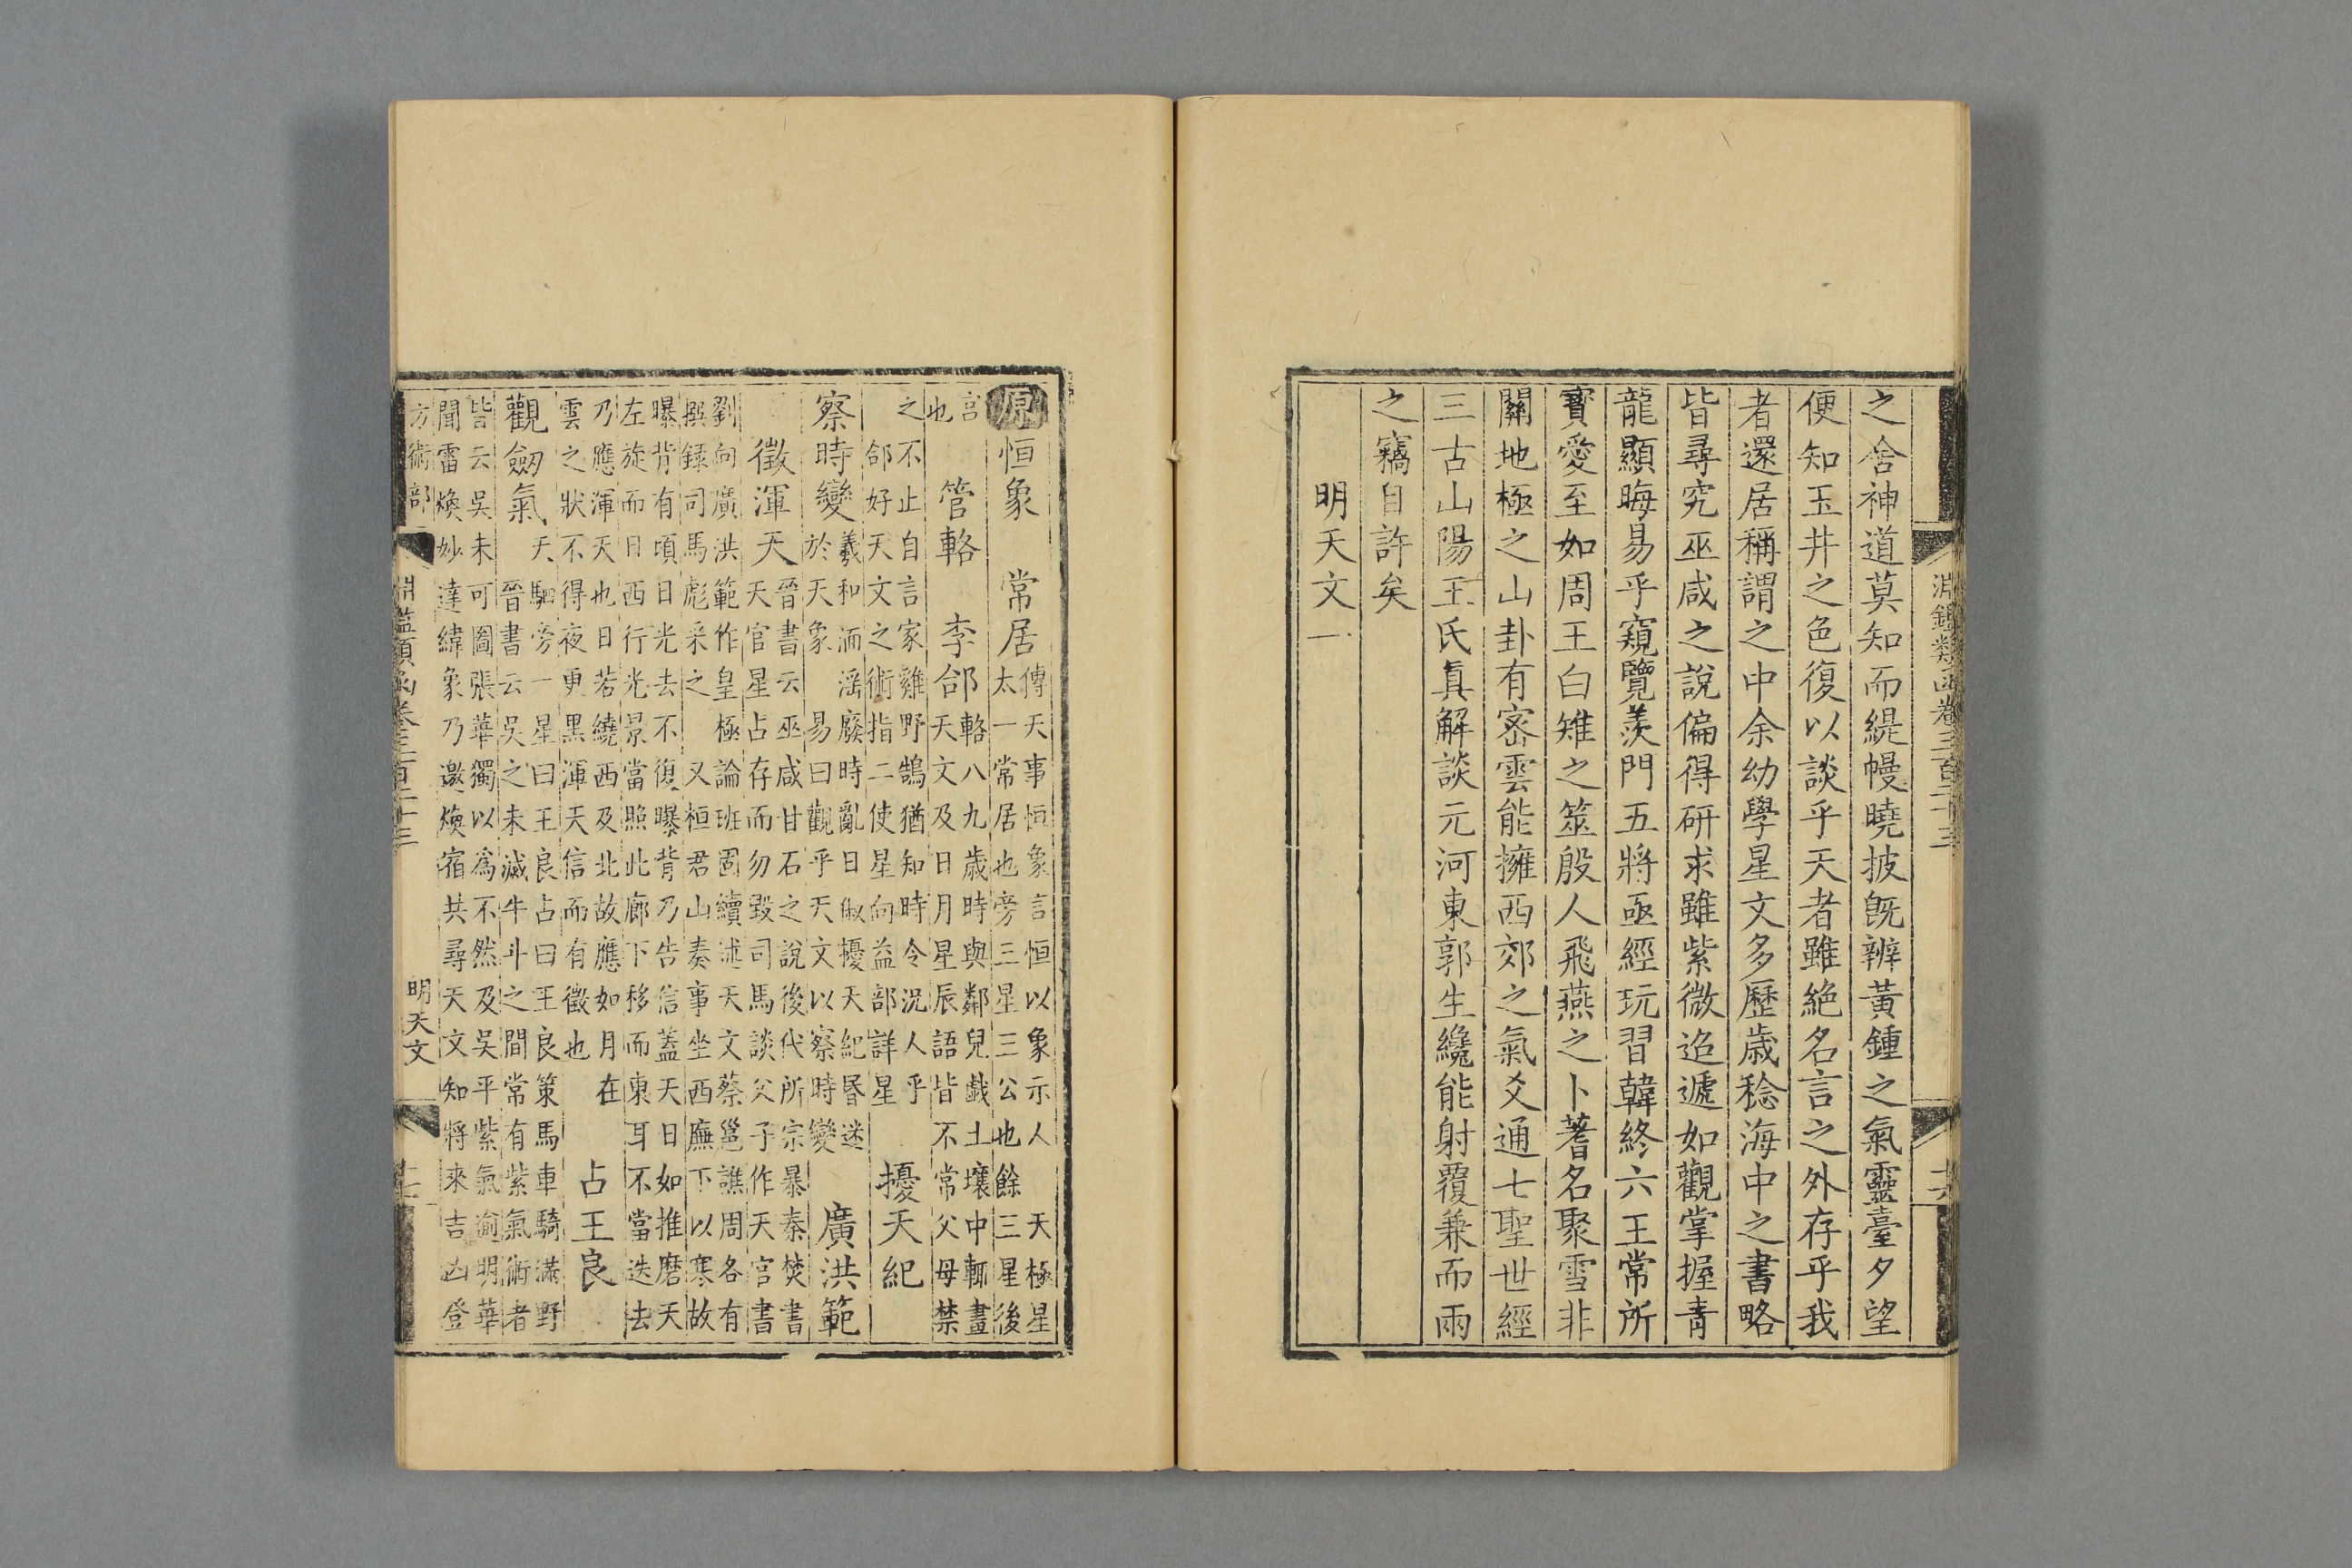 淵鑑類函卷三百二十三
之舍神道莫知而緹幔曉披旣辨黃鍾之氣靈臺夕望
便知玉井之色復以談乎天者雖絶名言之外存乎我
者還居稱謂之中余幼學星文多歷歳稔海中之書略
皆尋究巫咸之說偏得研求雖紫微迢遞如觀掌握青
龍顯晦易乎窺覽羨門五將亟經玩習韓終六王常所
寳愛至如周王白雉之筮殷人飛燕之卜蓍名聚雪非
關地極之山卦有密雲能擁西郊之氣爻通七聖世經
三古山陽王氏眞解談元河東郭生纔能射覆兼而兩
之竊自許矣
明天文一
原恒象 常居傳天事恒象言恒以象示人 天極星
太一常居也旁三星三公也餘三星後
宮
也 管輅 李郃輅八九歳時與鄰兒戲土壤中輒畫
天文及日月星辰語皆不常父母禁
之不止自言家雞野鵠猶知時令况人乎
郃好天文之術指二使星向益部詳星 擾天紀
察時變羲和湎滛廢時亂日俶擾天紀昬迷
於天象 易曰觀乎天文以察時變 廣洪範
徵渾天晉書云巫咸甘石之說後代所宗暴秦焚書
天官星占存而勿毀司馬談父子作天官書
劉向廣洪範作皇極論班固續述天文蔡邕譙周各有
撰録司馬彪采之 又桓君山奏事坐西廡下以寒故
曝背有頃日光去不復曝背乃告信蓋天日如推磨天
左旋而日西行光景當照此廊下移而東耳不當迭去
乃應渾天也日若繞西及北故應如月在
雲之狀不得夜更黑渾天信而有徵也 占王良
觀劒氣天駟旁一星曰王良占曰王良策馬車騎滿野
晉書云吳之未滅牛斗之間常有紫氣術者
皆云吳未可圖張華獨以爲不然及吳平紫氣逾明華
聞雷煥妙達緯象乃邀煥宿共尋天文知將來吉凶登
方術部 淵鑑類函卷三百二十三 明天文